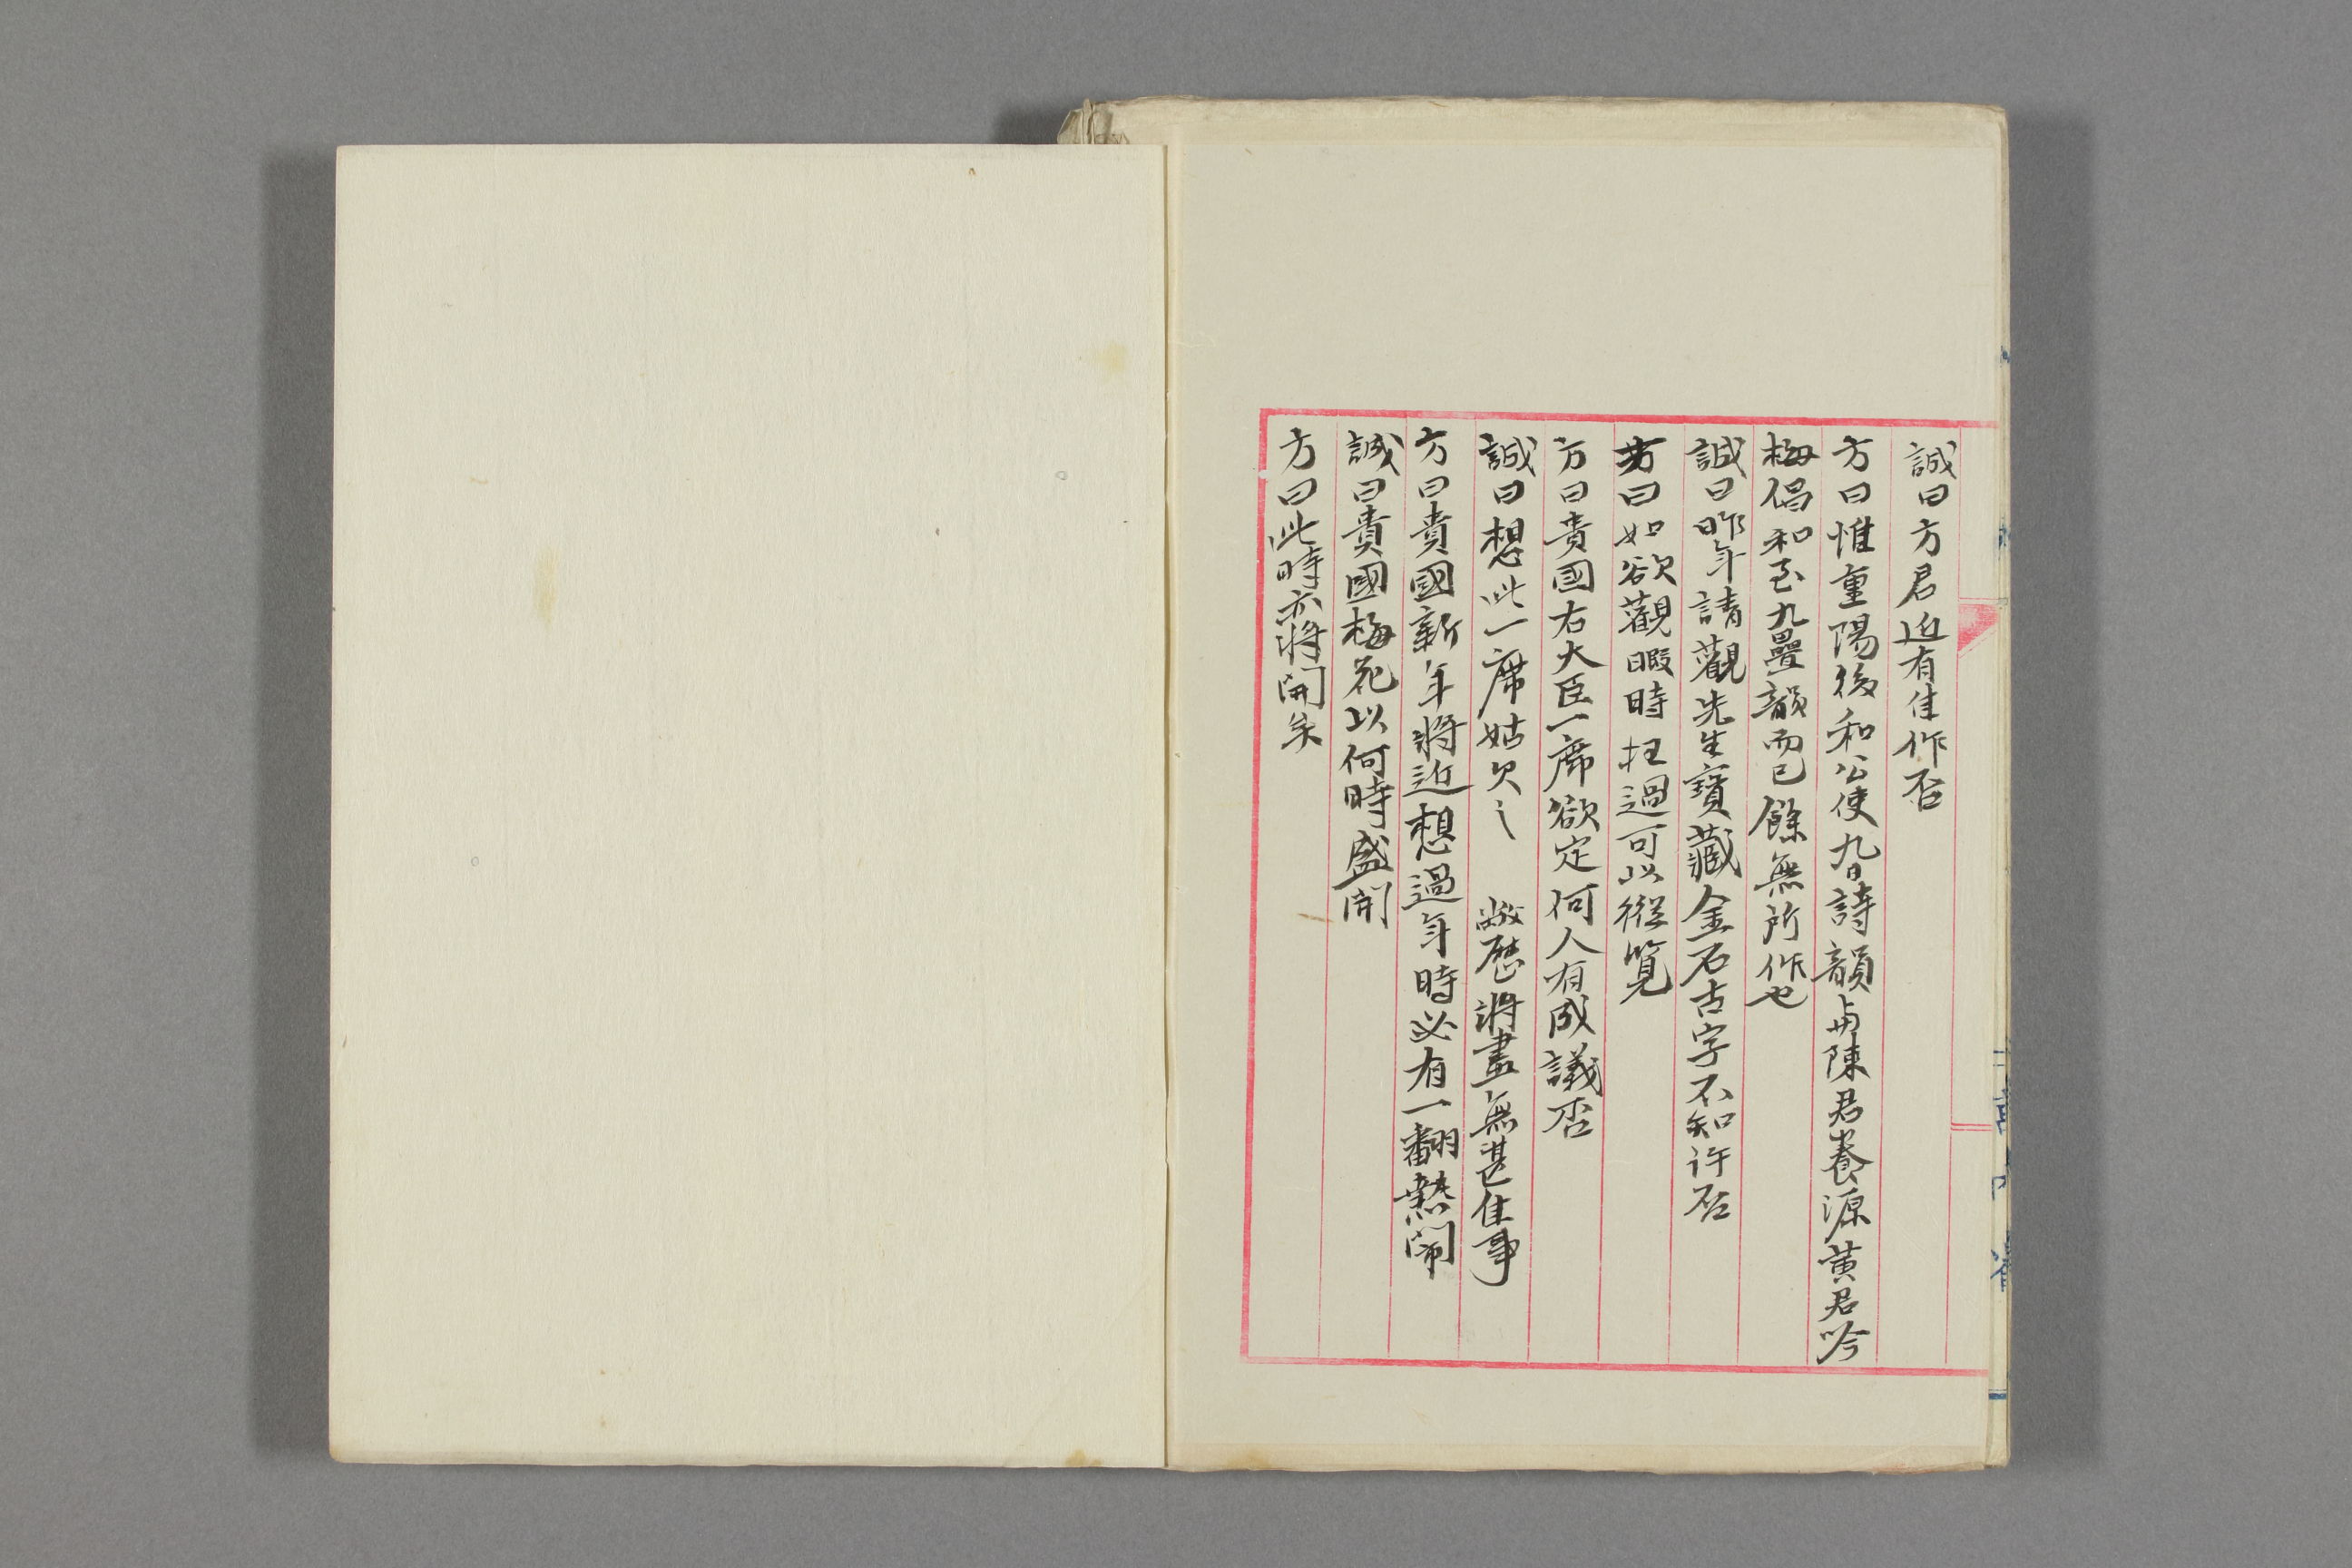 誠曰方君近有佳作否
方曰惟重陽後和公使九日詩韻與陳君養源黃君吟
梅倡和至九疊韻而已餘無所作也
誠曰昨年請觀先生寶藏金石古字不知許否
方曰如欲觀暇時枉過可以縱覽
方曰貴國右大臣一席欲定何人有成議否
誠曰想此一席姑欠之 敝曆將盡無甚佳事
方曰貴國新年將近想過年時必有一翻熱鬧
誠曰貴國梅花以何時盛開
方曰此時亦將開矣